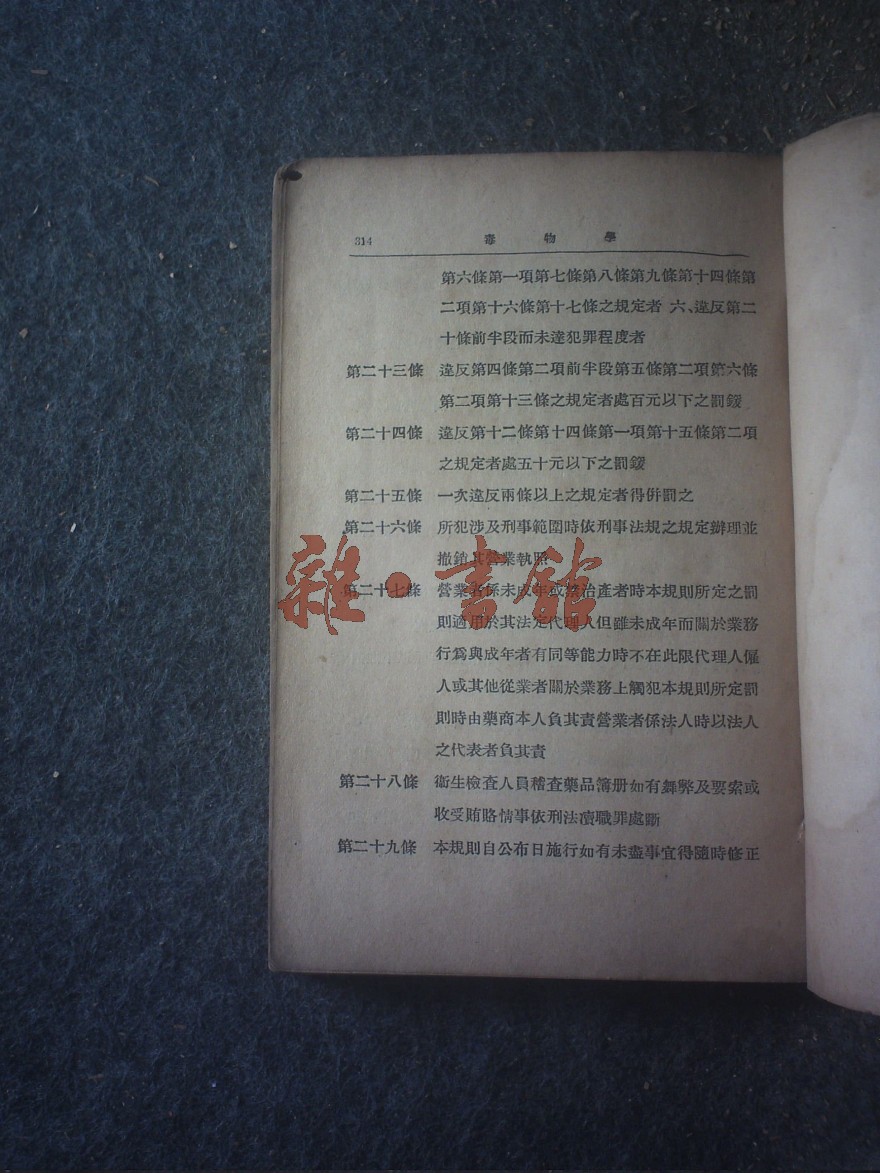 314 毒物學
第六條第一項第七條第八條第九條第十四條第
二項第十六條第十七條之規定者 六、違反第二
十條前半段而未達犯罪程度者
第二十三條 違反第四條第二項前半段第五條第二項第六條
第二項第十三條之規定者處百元以下之罰鍰
第二十四條 違反第十二條第十四條第一項第十五條第二項
之規定者處五十元以下之罰鍰
第二十五條 一次違反兩條以上之規定者得併罰之
第二十六條 所犯涉及刑事範圍時依刑事法規之規定辦理並
撤銷其營業執照
第二十七條 營業者係未成年或禁治產者時本規則所定之罰
則適用於其法定代理人但雖未成年而關於業務
行爲與成年者有同等能力時不在此限代理人僱
人或其他從業者關於業務上觸犯本規則所定罰
則時由藥商本人負其責營業者係法人時以法人
之代表者負其責
第二十八條 衛生檢查人員稽查藥品簿册如有舞弊及要索或
收受賄賂情事依刑法瀆職罪處斷
第二十九條 本規則自公布日施行如有未盡事宜得隨時修正
雜·書館